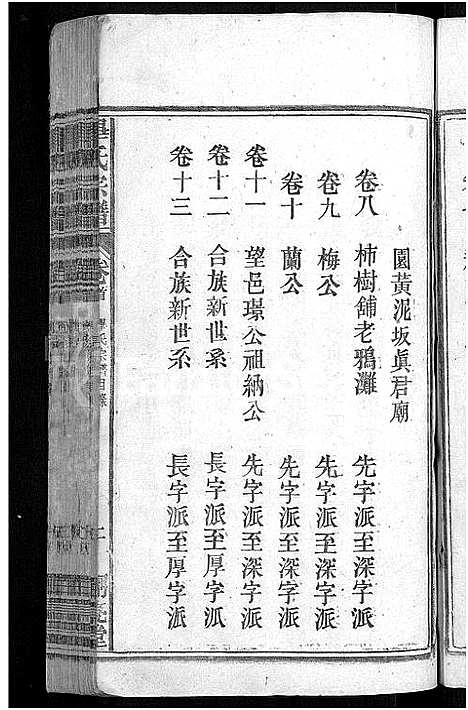 園黃泥坂眞君廟
卷八 柿樹舖老鴉灘 先字派至深字派
卷九 梅公 先字派至深字派
卷十 蘭公 先字派至深字派
卷十一 望邑璟公祖納公 先字派至深字派
卷十二 合族新世系 長字派至厚字派
卷十三 合族新世系 長字派至厚字派
畢氏宗譜 卷首 畢氏宗譜目錄